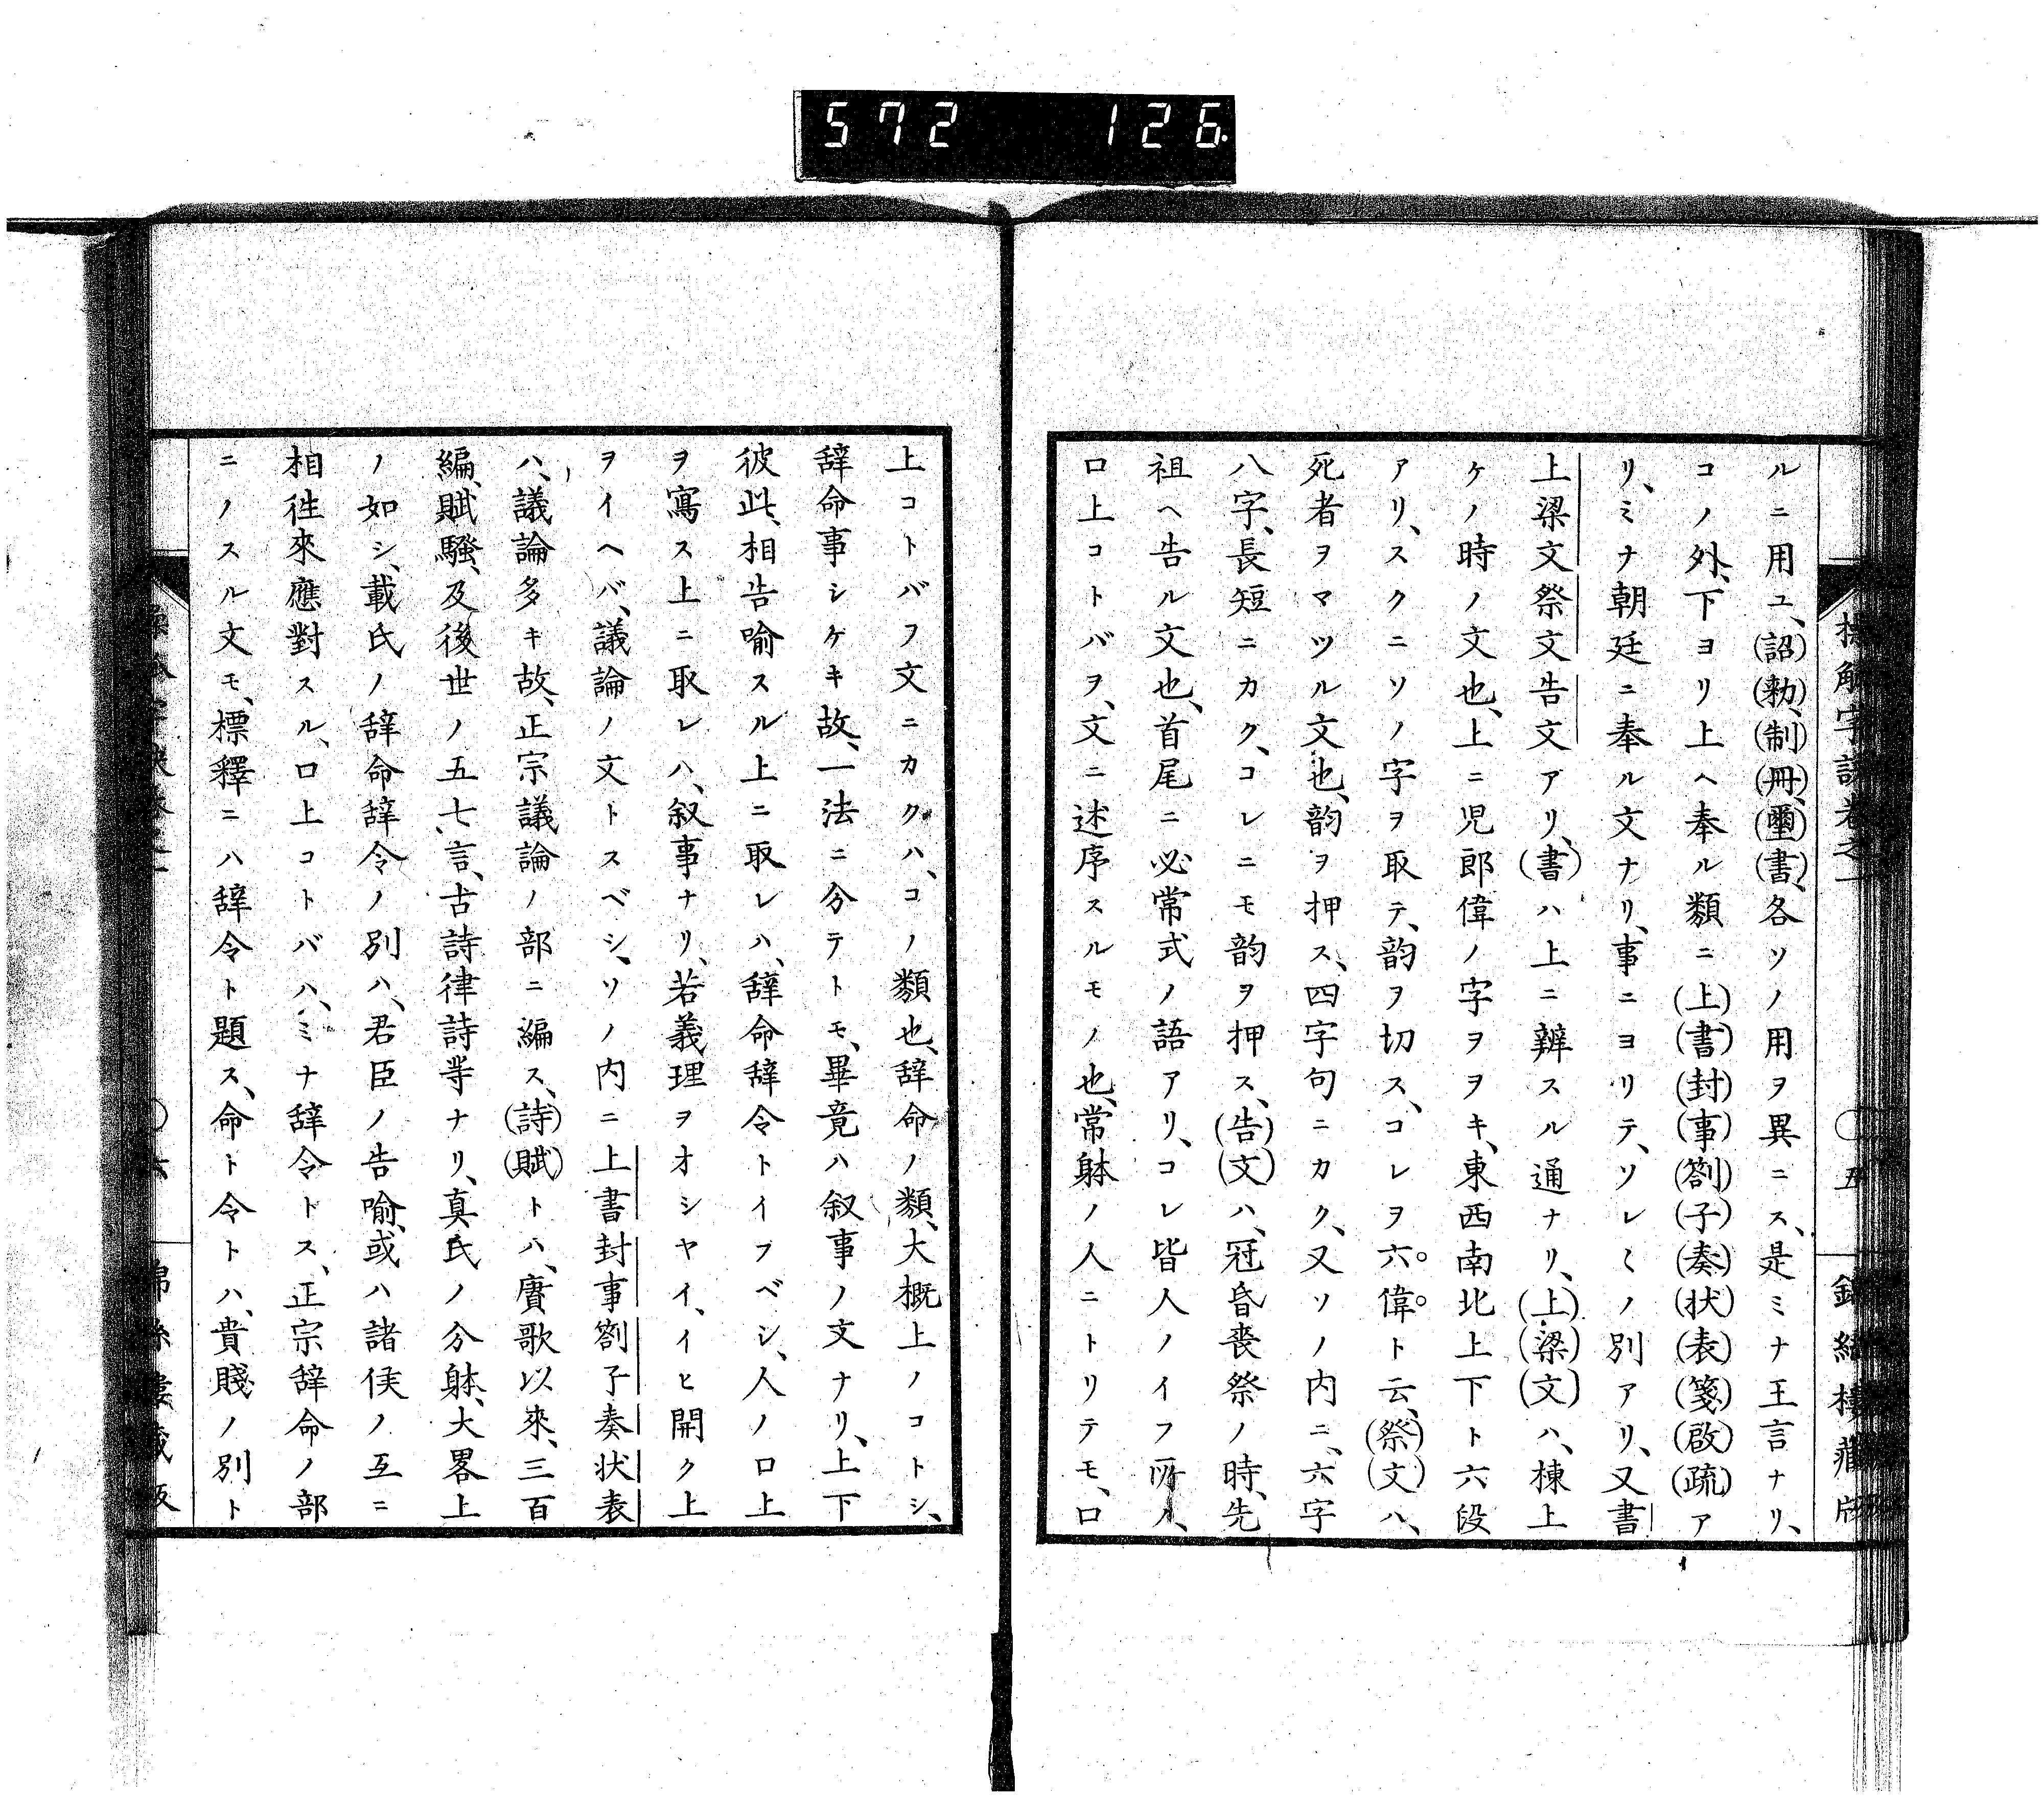 572 126
ルニ用ユ、(詔)(勅)、(制)(冊)、(璽)(書)、各ソノ用ヲ異ニス、是ミナ王言ナリ、
コノ外、下ヨリ上ヘ奉ル類ニ(上)(書)(封)(事)(劄)(子)(奏)(状)(表)(箋)(啟)(疏)ア
リ、ミナ朝廷ニ奉ル文ナリ、事ニヨリテ、ソレ〱ノ別アリ、又書
上梁文祭文告文アリ、(書)ハ上ニ辨スル通ナリ、(上)(梁)(文)ハ、棟上
ケノ時ノ文也、上ニ児郎偉ノ字ヲヲキ、東西南北上下ト六段
アリ、スクニソノ字ヲ取テ、韵ヲ切ス、コレヲ六偉ト云、(祭)(文)ハ、
死者ヲマツル文也、韵ヲ押ス、四字句ニカク、又ソノ内ニ、六字
八字、長短ニカク、コレニモ韵ヲ押ス、(告)(文)ハ、冠昏喪祭ノ時、先
祖ヘ告ル文也、首尾ニ必常式ノ語アリ、コレ皆人ノイフ所ノ、
口上コトバヲ、文ニ述序スルモノ也、常躰ノ人ニトリテモ、口
五
上コトバフ文ニカクハ、コノ類也、辞命ノ類、大概上ノコトシ、
辞命事シケキ故、一法ニ分テトモ、畢竟ハ叙事ノ文ナリ、上下
彼此、相告喻スル上ニ取レハ、辞命辞令トイフベシ、人ノ口上
ヲ寫ス上ニ取レハ、叙事ナリ、若義理ヲオシヤイ、イヒ開ク上
ヲイヘバ、議論ノ文トスベシ、ソノ内ニ上書封事劄子奏状表
ハ、議論多キ故、正宗議論ノ部ニ編ス、(詩)(賦)トハ、賡歌以來、三百
編、賦騷、及後世ノ五七言、古詩律詩等ナリ、真氏ノ分躰、大畧上
ノ如シ、載氏ノ辞命辞令ノ別ハ、君臣ノ告喻、或ハ諸侯ノ互ニ
相徃來應對スル、口上コトバハ、ミナ辞令トス、正宗辞命ノ部
ニノスル文モ、標釋ニハ辞令ト題ス、命ト令トハ、貴賤ノ別ト